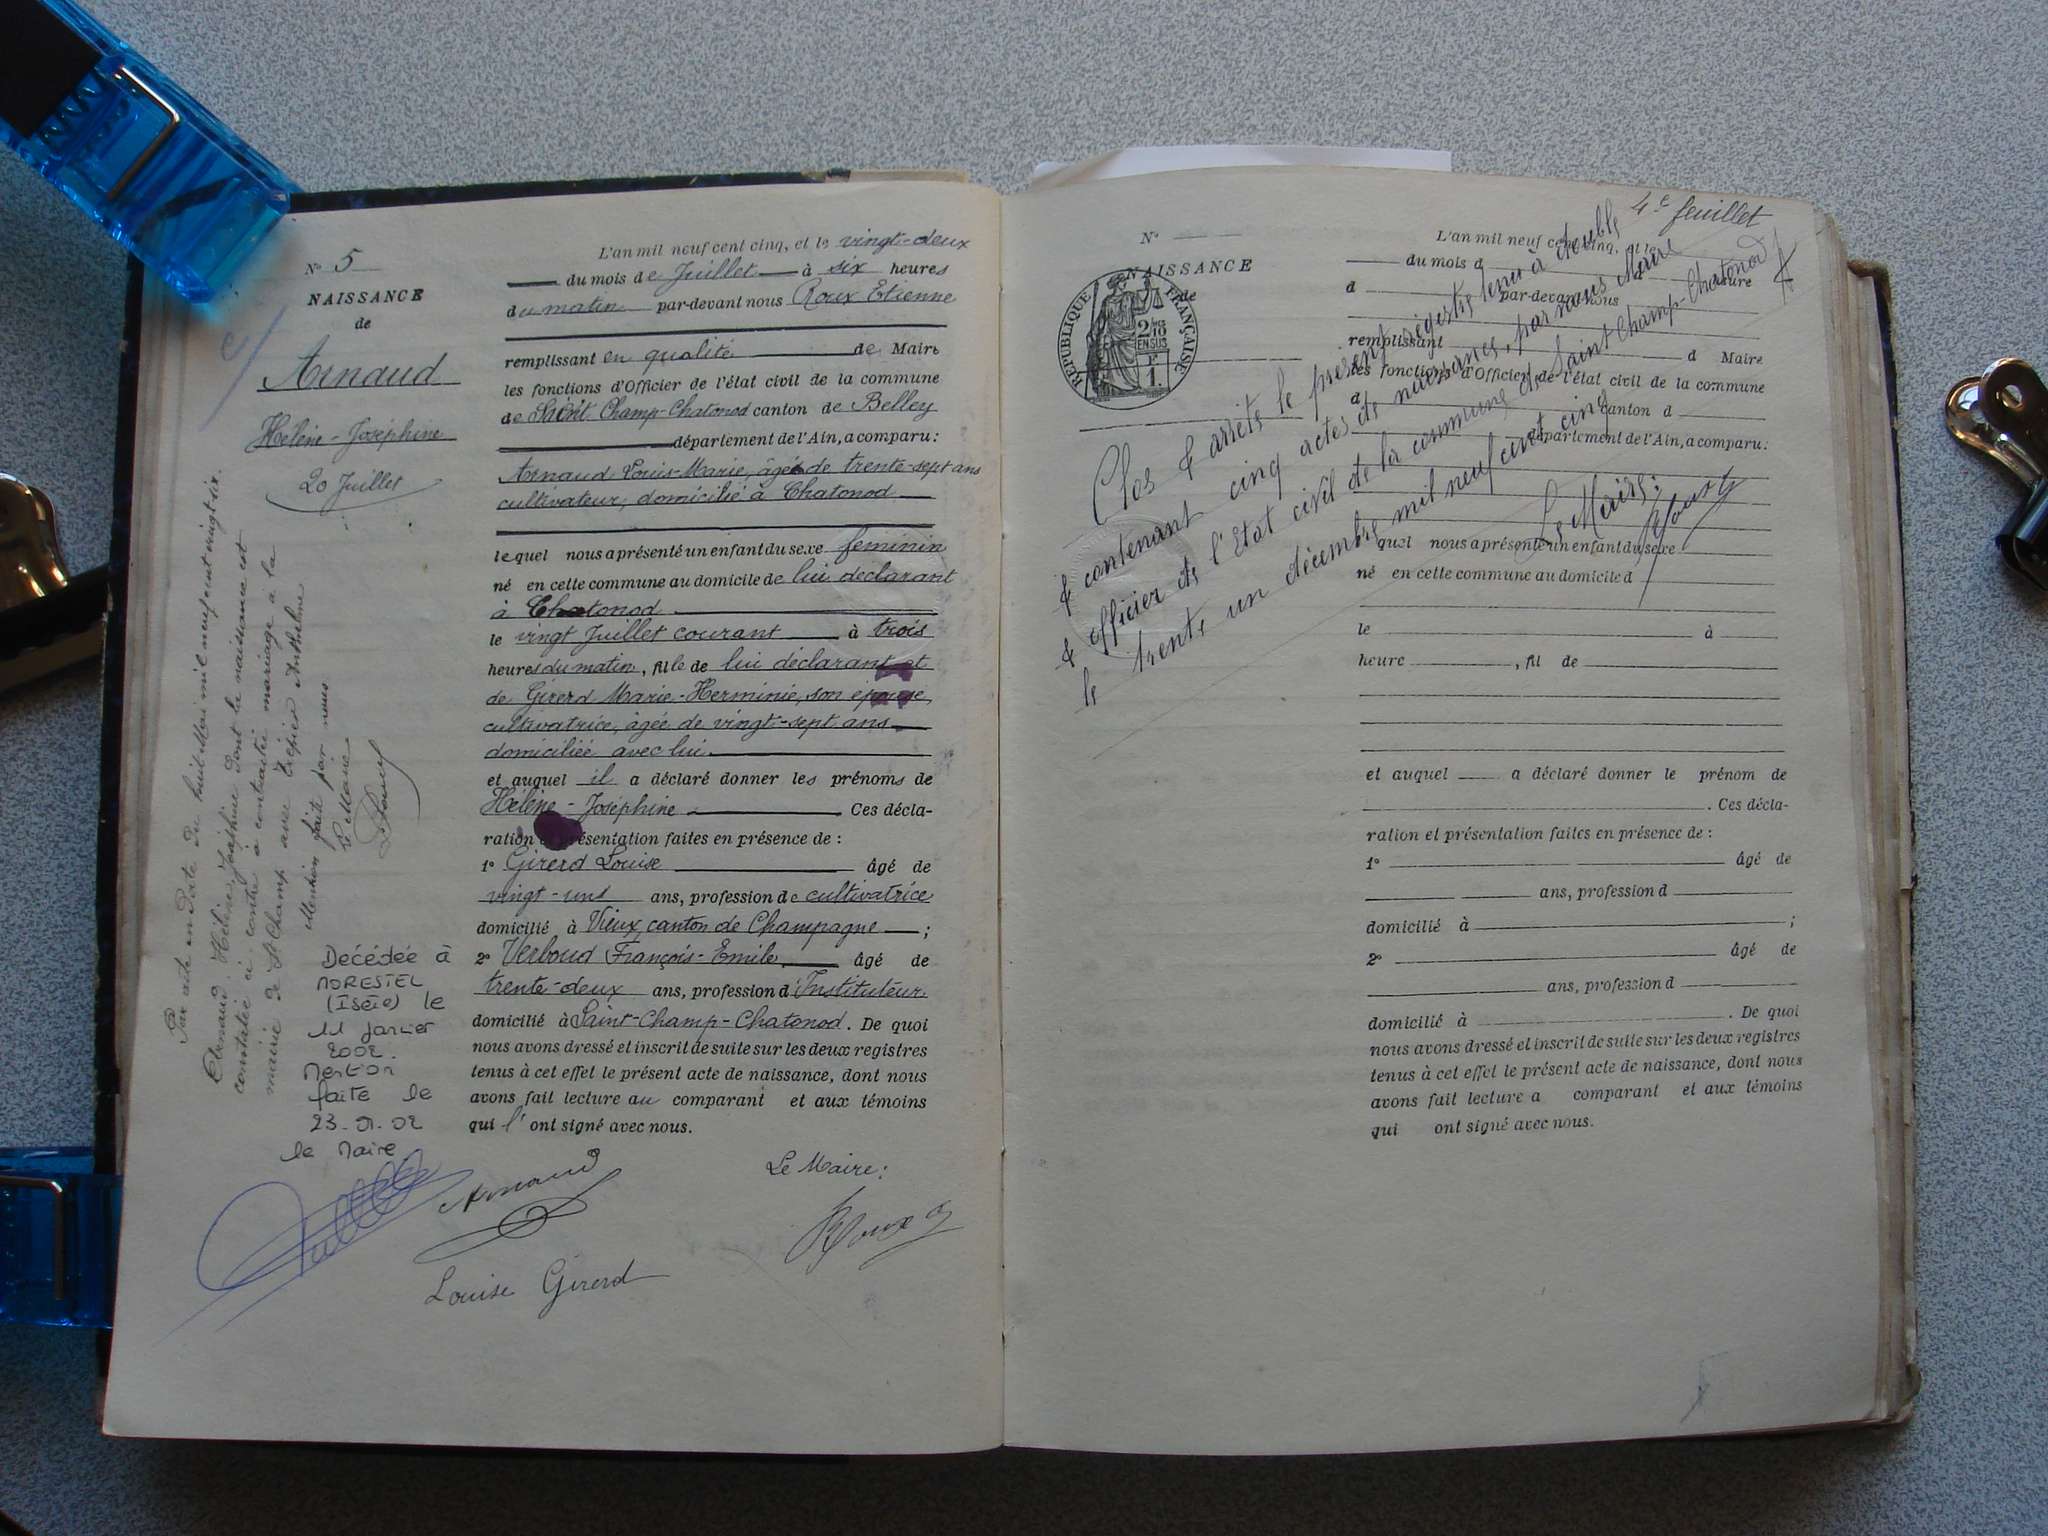 N° 5
NAISSANCE
de
Arnaud
Hélène-Joséphine
20 Juillet
Par acte en date du huit Mai mil neuf cent vingt-six
Arnaud Hélène Joséphine dont la naissance est
constatée ci contre a contracté mariage à la
mairie de St Champ avec Anthelme
Mention faite par nous
Le Maire
Décédée à
MORESTEL
(Isère) le
11 janvier
2002.
Mention
faite le
23.01.02
le Maire
L'an mil neuf cent cinq, et le vingt-deux
du mois de Juillet à six heures
du matin par-devant nous Roux Etienne
remplissant en qualité de Maire
les fonctions d'Officier de l'état civil de la commune
de Saint-Champ-Chatonod canton de Belley
département de l'Ain, a comparu :
Arnaud Louis-Marie, âgé de trente-sept ans
cultivateur, domicilié à Chatonod
lequel nous a présenté un enfant du sexe feminin
né en cette commune au domicile de lui déclarant
à Chatonod
le vingt Juillet courant à trois
heures du matin, fille de lui déclarant et
de Girerd Marie-Herminie, son épouse,
cultivatrice, âgée de vingt-sept ans
domiciliée avec lui.
et auquel il a déclaré donner les prénoms de
Hélène-Joséphine Ces décla-
ration et présentation faites en présence de :
1° Girerd Louise âgé de
vingt-uns ans, profession de cultivatrice
domicilié à Vieux, canton de Champagne ;
2° Verboud François-Emile âgé de
trente-deux ans, profession d'Instituteur
domicilié à Saint-Champ-Chatonod. De quoi
nous avons dressé et inscrit de suite sur les deux registres
tenus à cet effet le présent acte de naissance, dont nous
avons fait lecture au comparant et aux témoins
qui l'ont signé avec nous.
Le Maire :
Arnaud
Roux
Louise Girerd
4e feuillet
N°
NAISSANCE
de
RÉPUBLIQUE FRANÇAISE
2/10 EN SUS
1.
Clos & arrêté le présent régistre tenu à double
& contenant cinq actes de naissances, par nous Maire
& officier de l'Etat civil de la commune de Saint-Champ-Chatonod
le trente un décembre mil neuf cent cinq
Le Maire :
Roux
L'an mil neuf cent cinq, et le
du mois d à heure
d par-devant nous
remplissant d Maire
les fonctions d'Officier de l'état civil de la commune
d canton d
département de l'Ain, a comparu :
quel nous a présenté un enfant du sexe
né en cette commune au domicile d
le à
heure , fil de
et auquel a déclaré donner le prénom de
. Ces décla-
ration et présentation faites en présence de :
1° âgé de
ans, profession d
domicilié à ;
2° âgé de
ans, profession d
domicilié à . De quoi
nous avons dressé et inscrit de suite sur les deux registres
tenus à cet effet le présent acte de naissance, dont nous
avons fait lecture a comparant et aux témoins
qui ont signé avec nous.